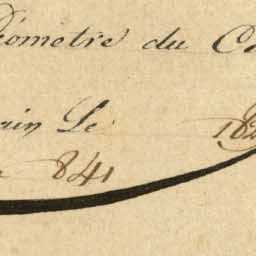 Géomètre du C
ain Le 18
841